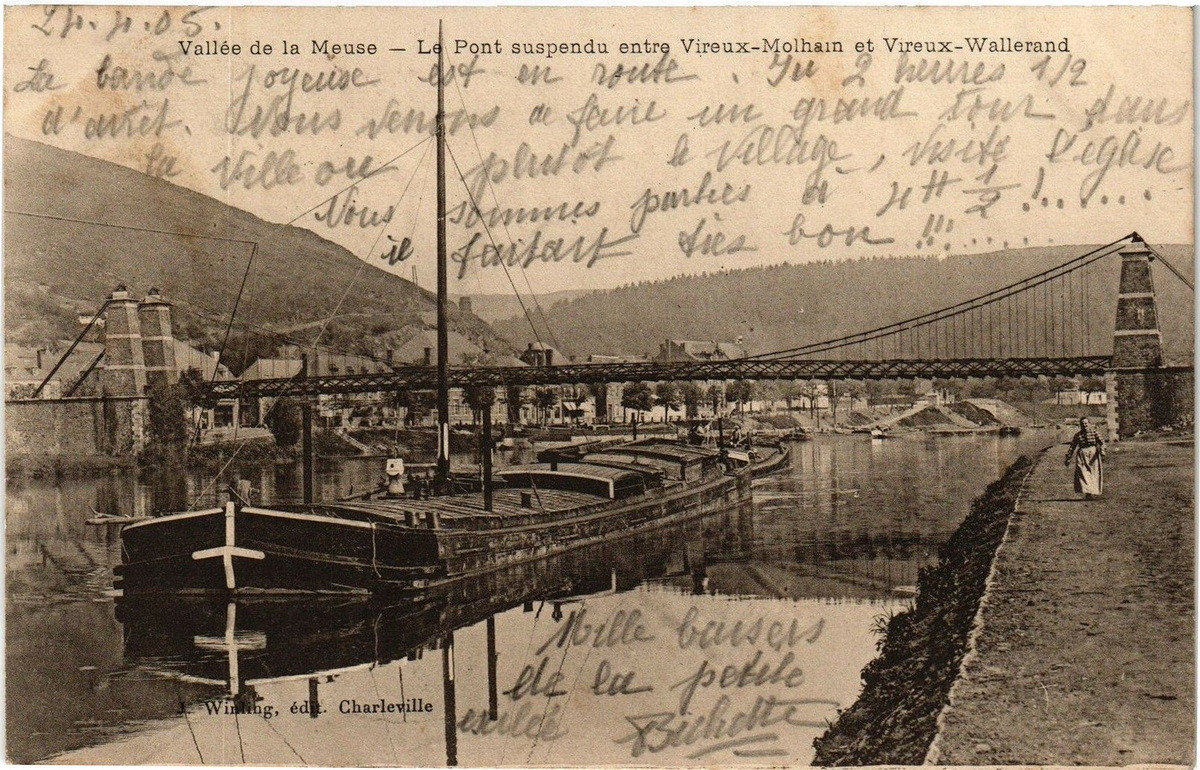 24.4.05.
Vallée de la Meuse — Le Pont suspendu entre Vireux-Molhain et Vireux-Wallerand
La bande joyeuse est en route. Ici 2 heures 1/2
d'arrêt. Nous venons de faire un grand tour dans
la ville ou plutot le village, visité l'église
Nous sommes parties à 4H 1/2 !......
il faisait très bon !!!......
Mille baisers
de la petite
exilée Bichette
J. Winling, édit. Charleville